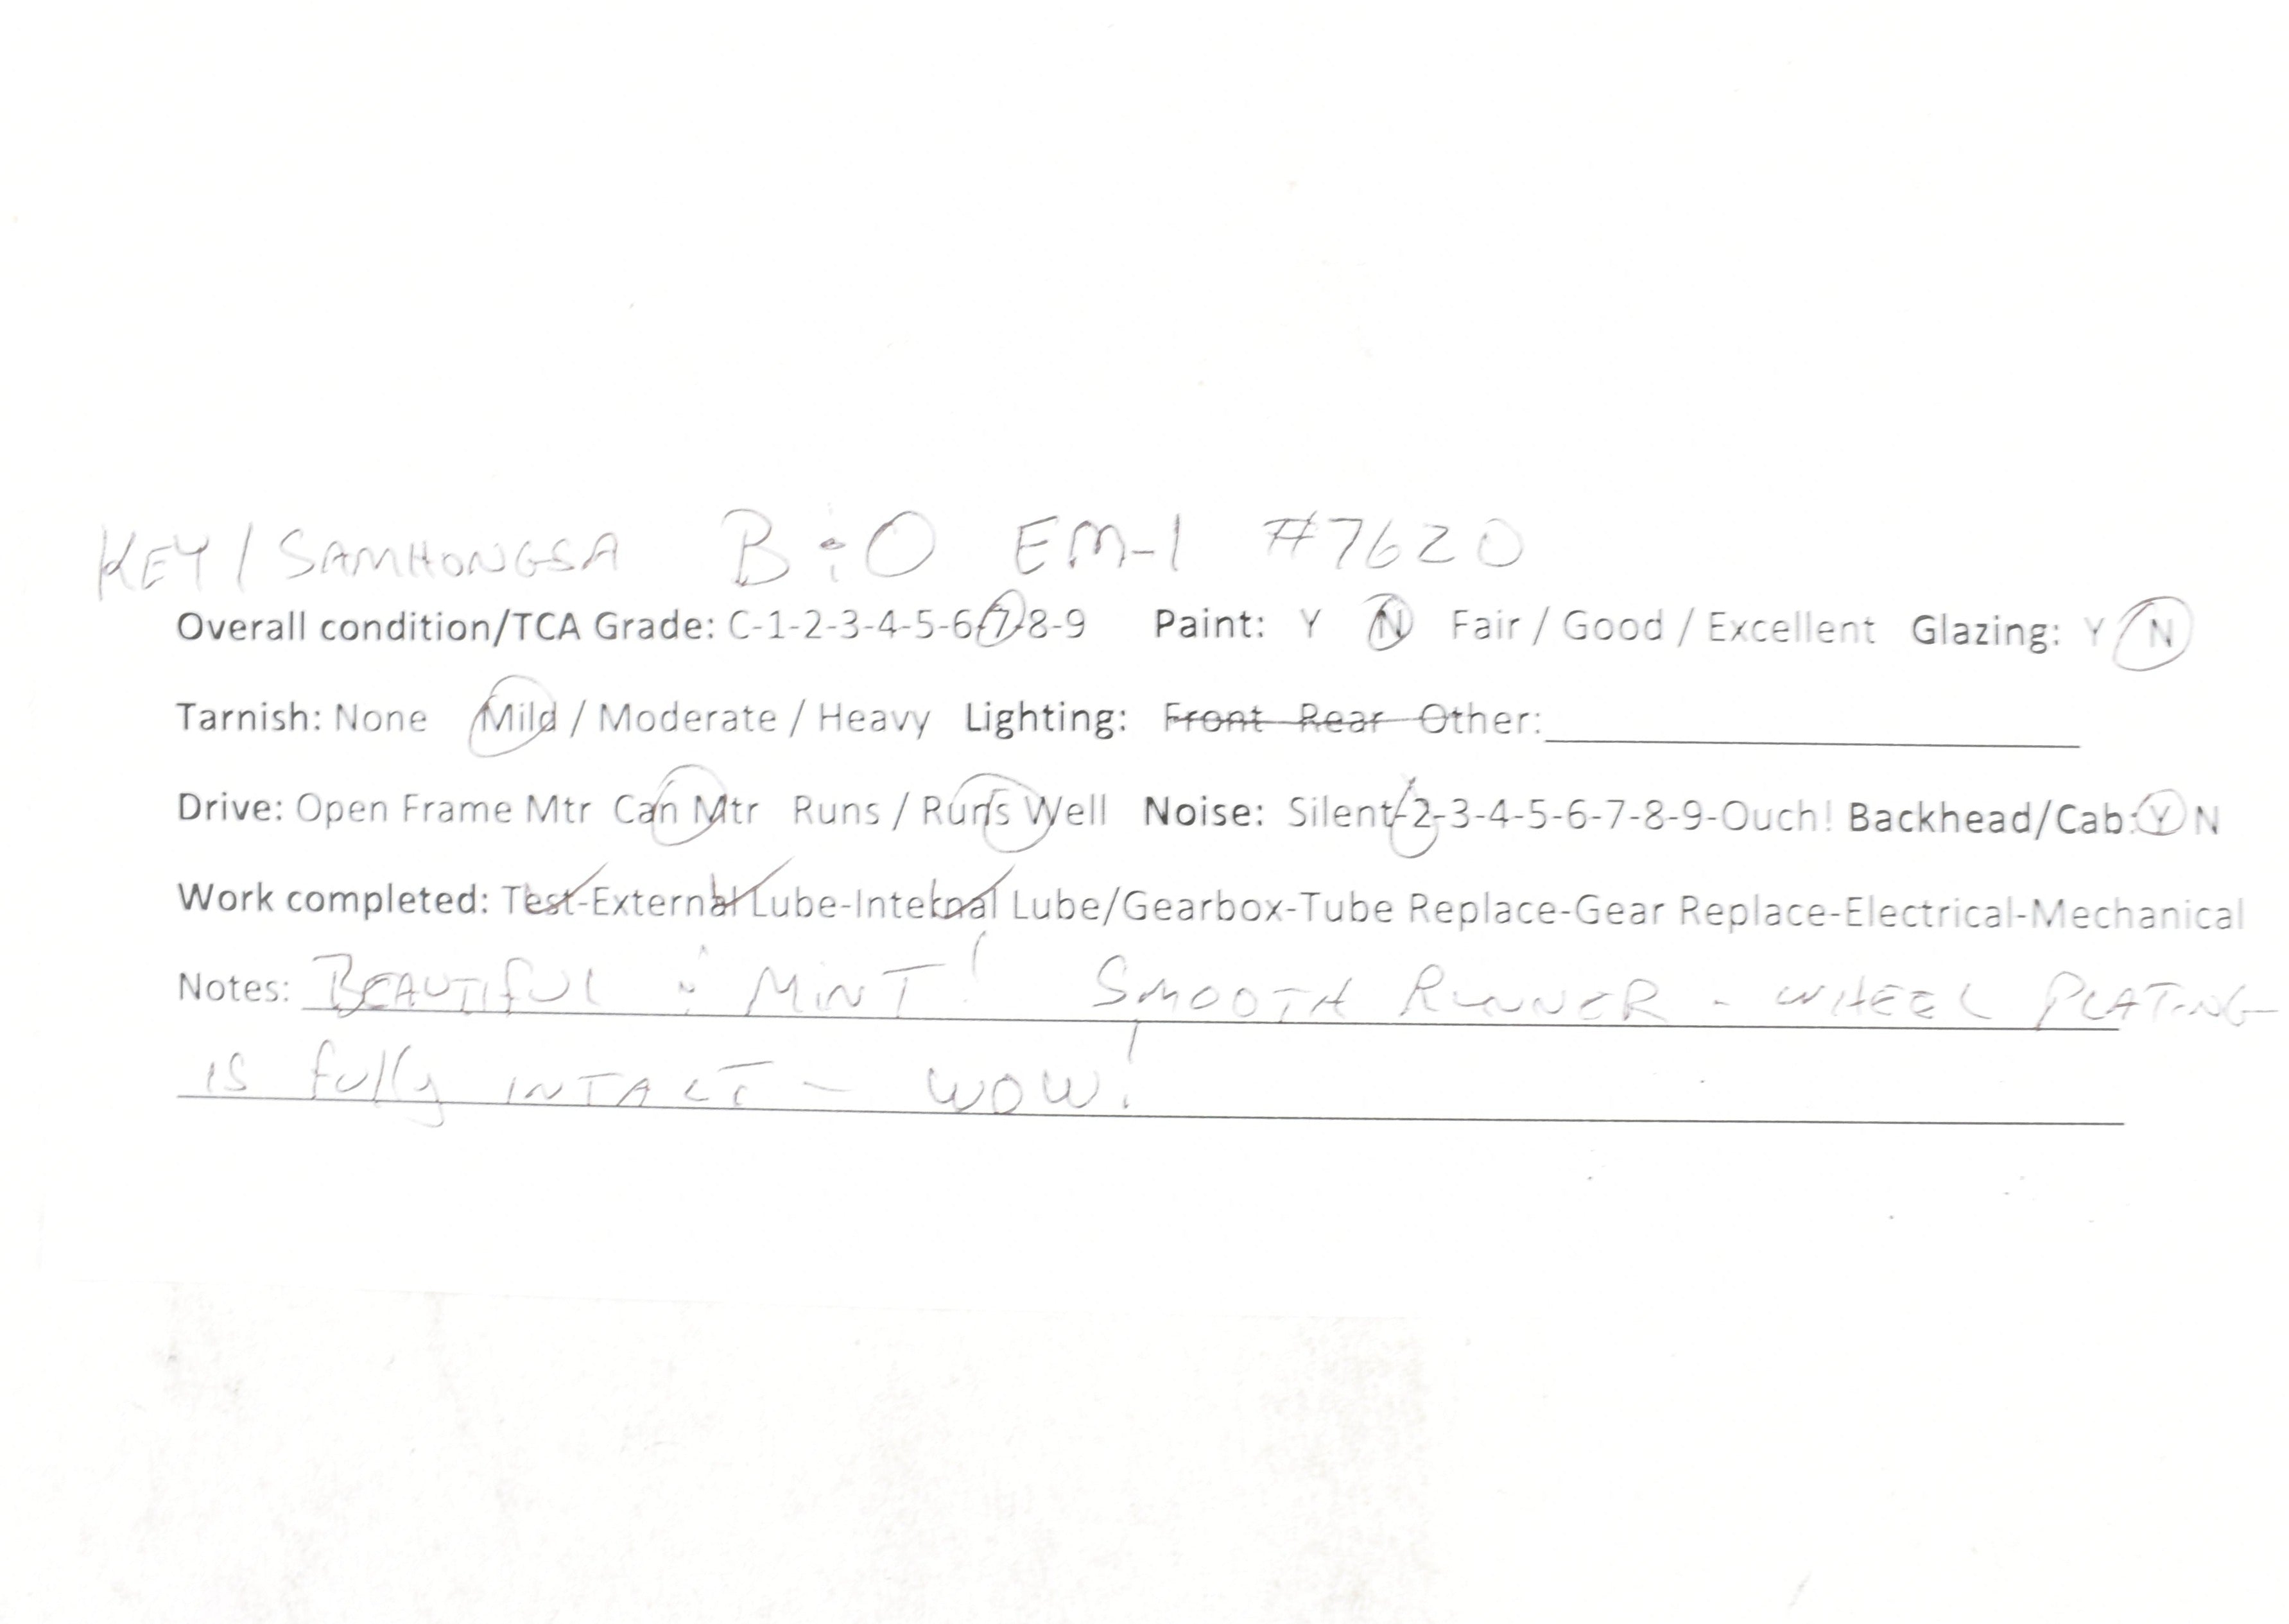 KEY/SAMHONGSA B&O EM-1 #7620
Overall condition/TCA Grade: C-1-2-3-4-5-6-7-8-9 Paint: Y N Fair / Good / Excellent Glazing: Y N
Tarnish: None Mild / Moderate / Heavy Lighting: Front Rear Other:
Drive: Open Frame Mtr Can Mtr Runs / Runs Well Noise: Silent-2-3-4-5-6-7-8-9-Ouch! Backhead/Cab: Y N
Work completed: Test-External Lube-Internal Lube/Gearbox-Tube Replace-Gear Replace-Electrical-Mechanical
Notes: BEAUTIFUL & MINT! SMOOTH RUNNER - WHEEL PLATING
IS fully INTACT - WOW!